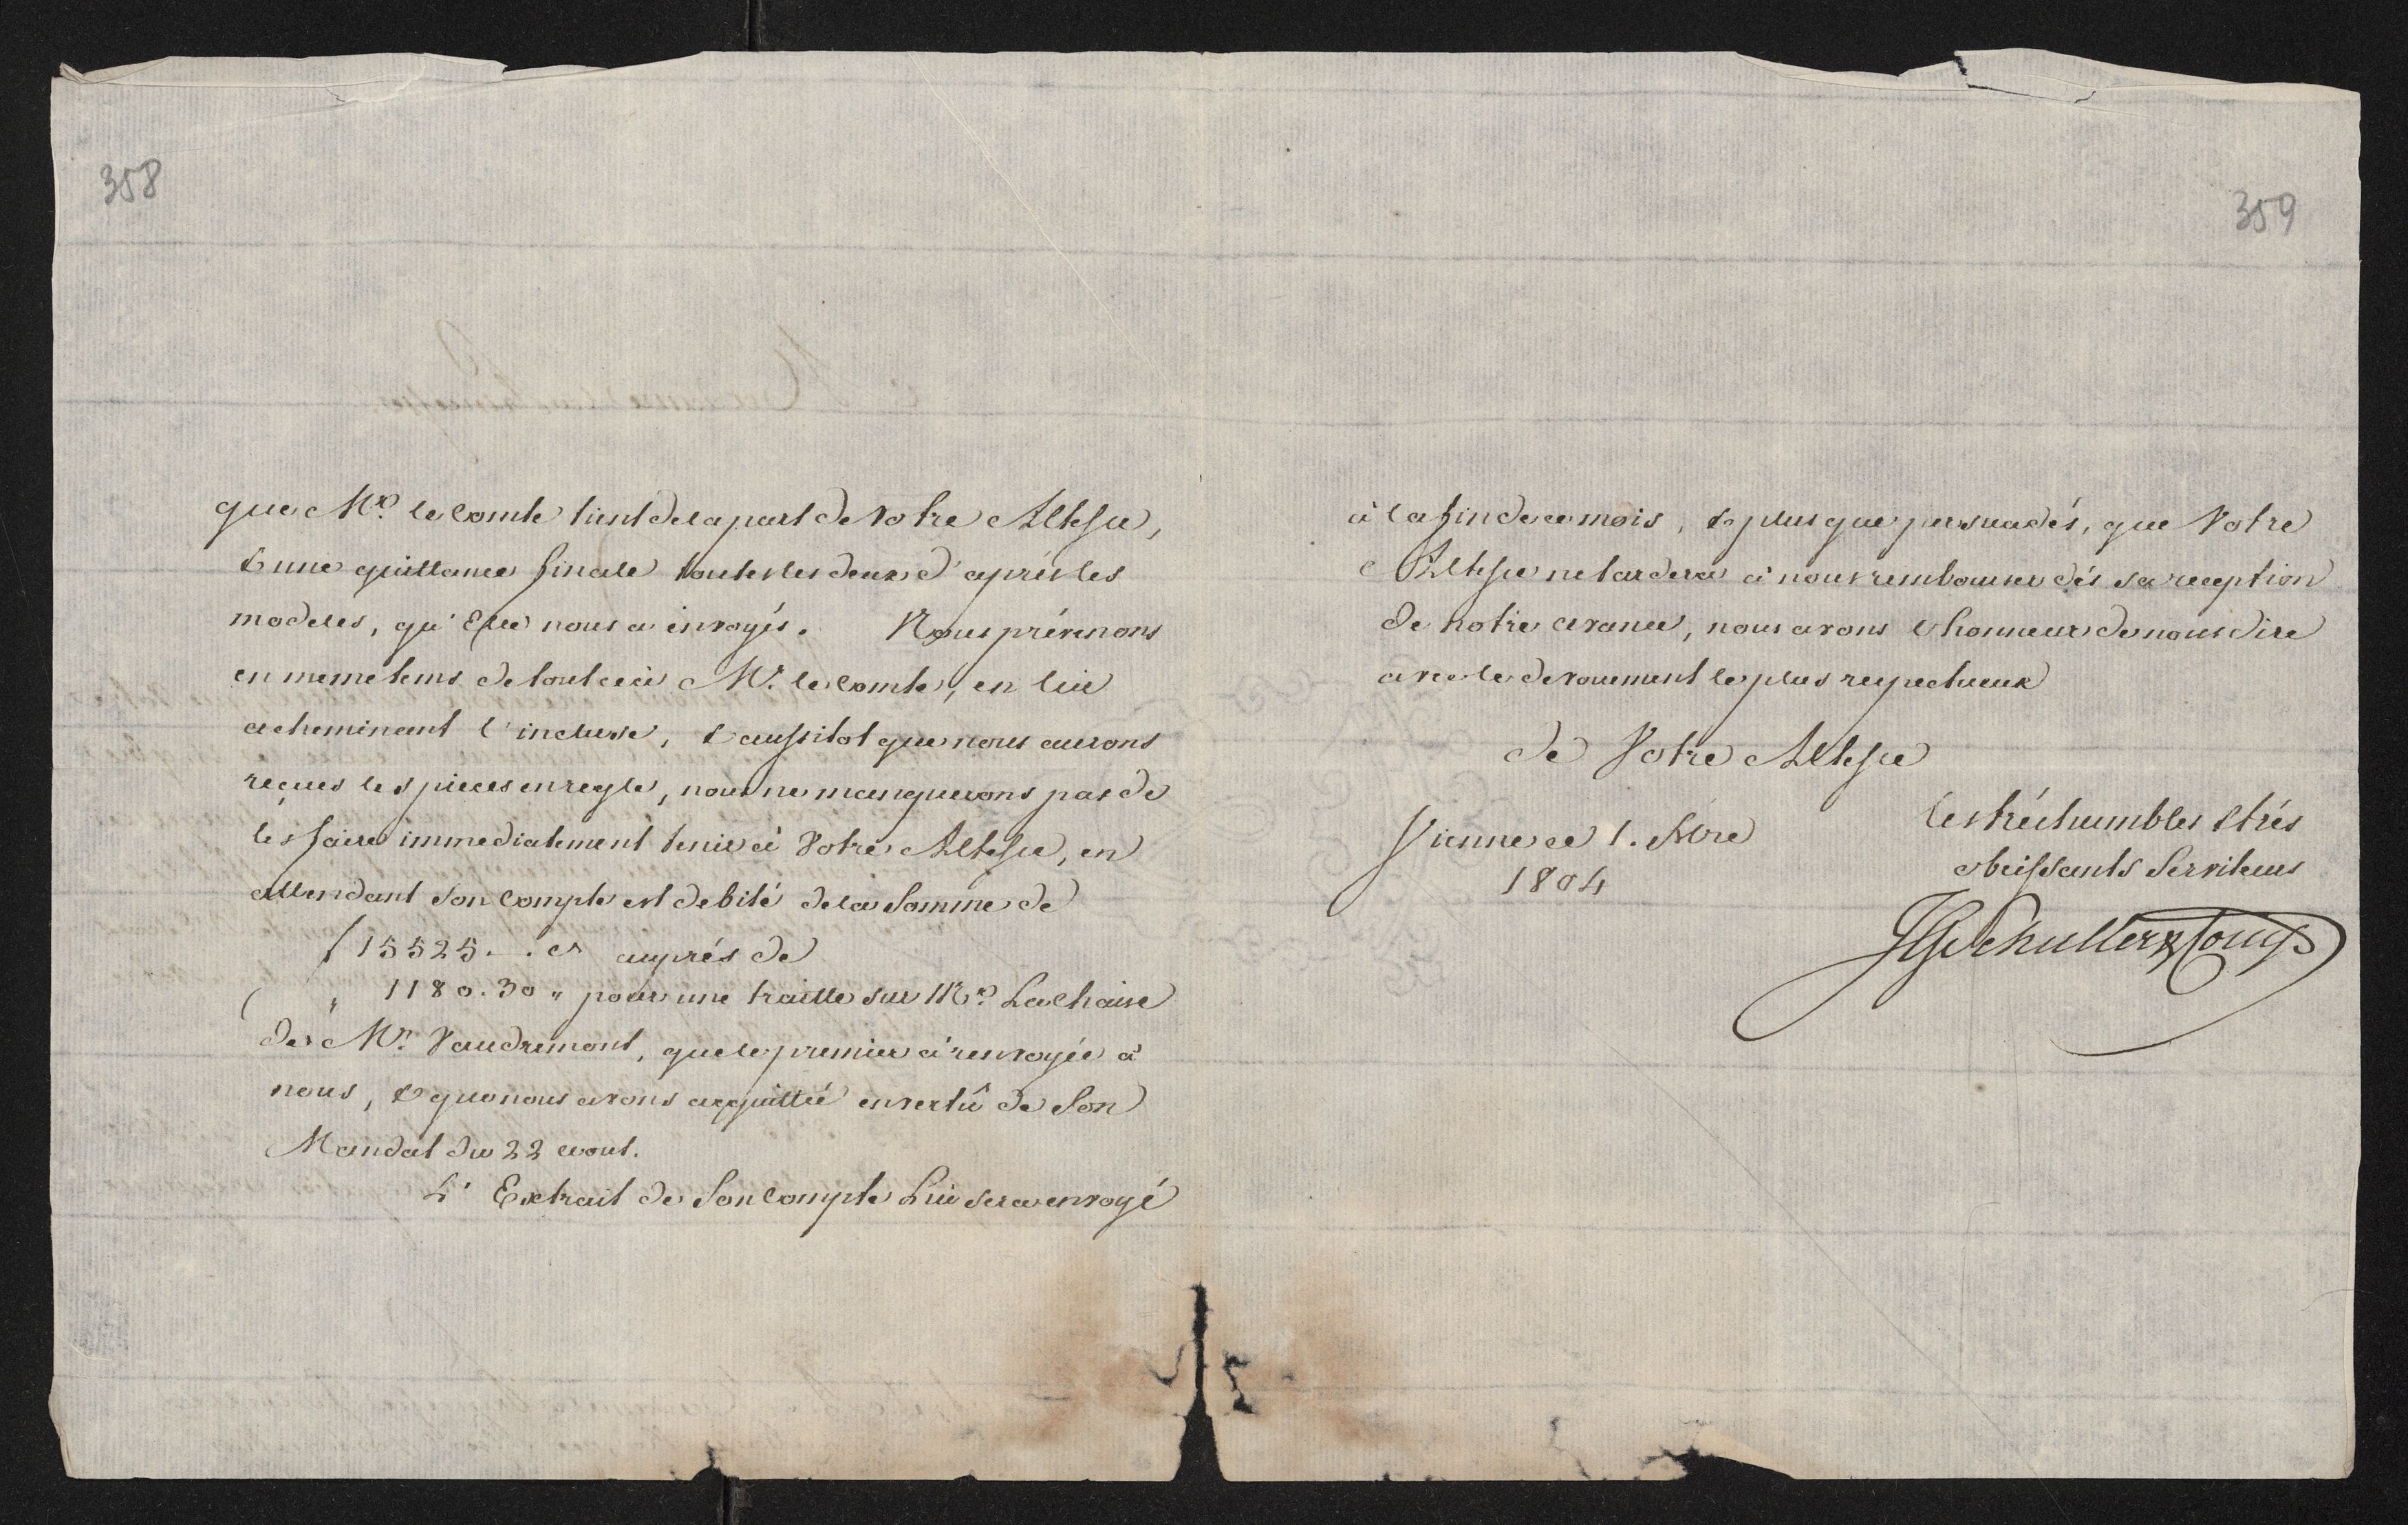 358
que Mr. le Comte tient de la part de Votre Altesse,
& une quittance finale toutes les deux d'aprés les
modeles, qu'Elle nous a envoyés. Nous prévenons
en meme tems de tout ceci Mr. le Comte, en lui
acheminant l'incluse, & aussitot que nous aurons
reçues les pieces en regle, nous ne manquerons pas de
les faire immediatement tenir à Votre Altesse, en
attendant Son Compte est debité de la Somme de
f 15525. . auprés de
" 1180. 30 " pour une traitte sur Mr. Lachaise
de Mr. Vaudremont, que le premier a renvoyée à
nous, & que nous avons acquittée en vertû de Son
Mandat du 22 aout.
L'Extrait de Son Compte Lui sera envoyé
359
à la fin de ce mois, & plus que persuadés, que Votre
Altesse ne tardera à nous rembourser dés sa reception
de notre avance, nous avons l'honneur de nous dire
avec le devouement le plus respectueux
de Votre Altesse
Les trés humbles & trés
Vienne ce 1. Sbre
obeissants Serviteurs
1804
Schuller & Comp